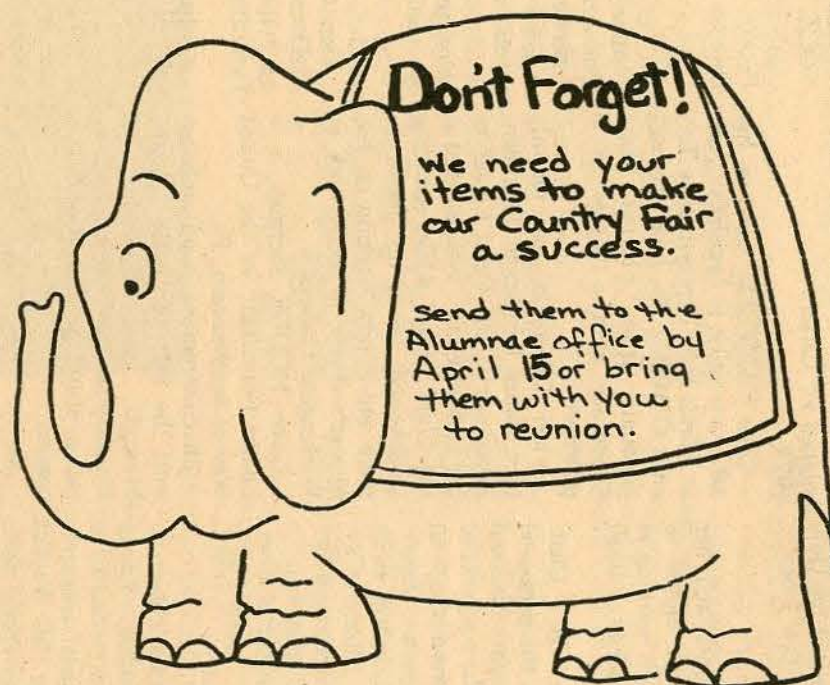 Don't Forget!
We need your
items to make
our Country Fair
a success.
send them to the
Alumnae office by
April 15 or bring
them with you
to reunion.